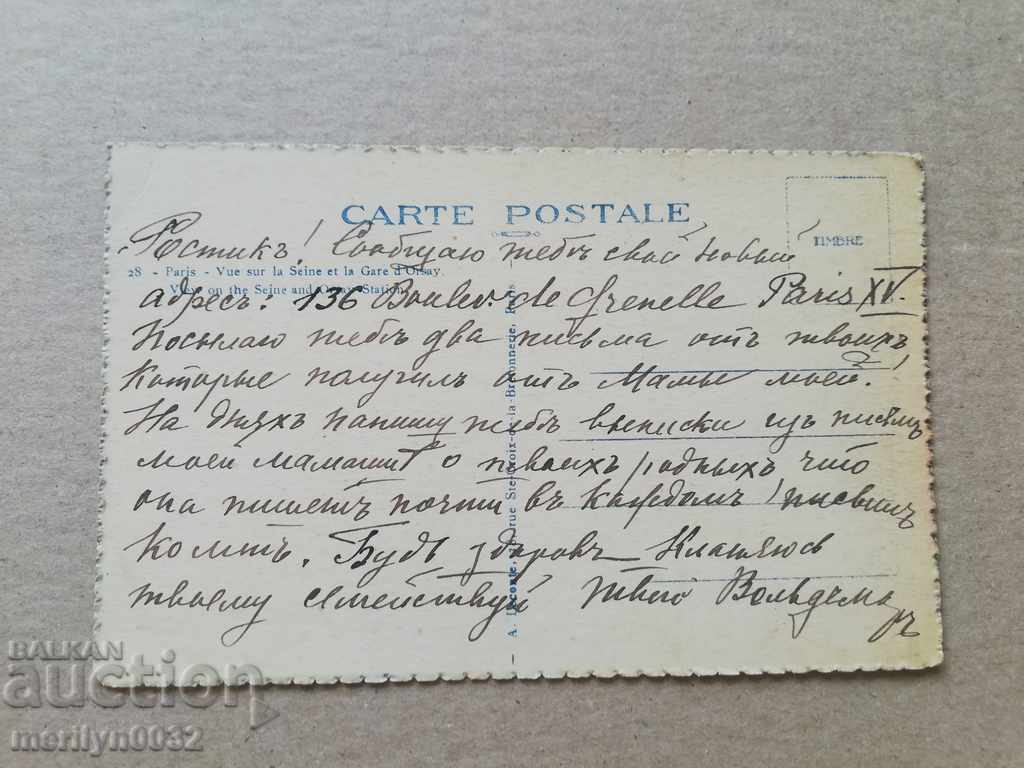 CARTE POSTALE
TIMBRE
Ростикъ! Сообщаю тебѣ свой новый
28 - Paris - Vue sur la Seine et la Gare d'Orsay.
View on the Seine and Orsay Station.
адресъ: 136 Boulev. de Grenelle Paris XV.
Посылаю тебѣ два письма отъ твоихъ
которые получилъ отъ Мамы моей.
На дняхъ напишу тебѣ выписки изъ писемъ
моей мамаши о твоихъ родныхъ что
она пишетъ почти въ каждомъ письмѣ
ко мнѣ. Будь здоровъ Кланяюсь
твоему семейству Твой Вольдемаръ
A. Leconte, rue Ste-Croix-de-la-Bretonnerie, Paris
BALKAN
auction
merilyn0032